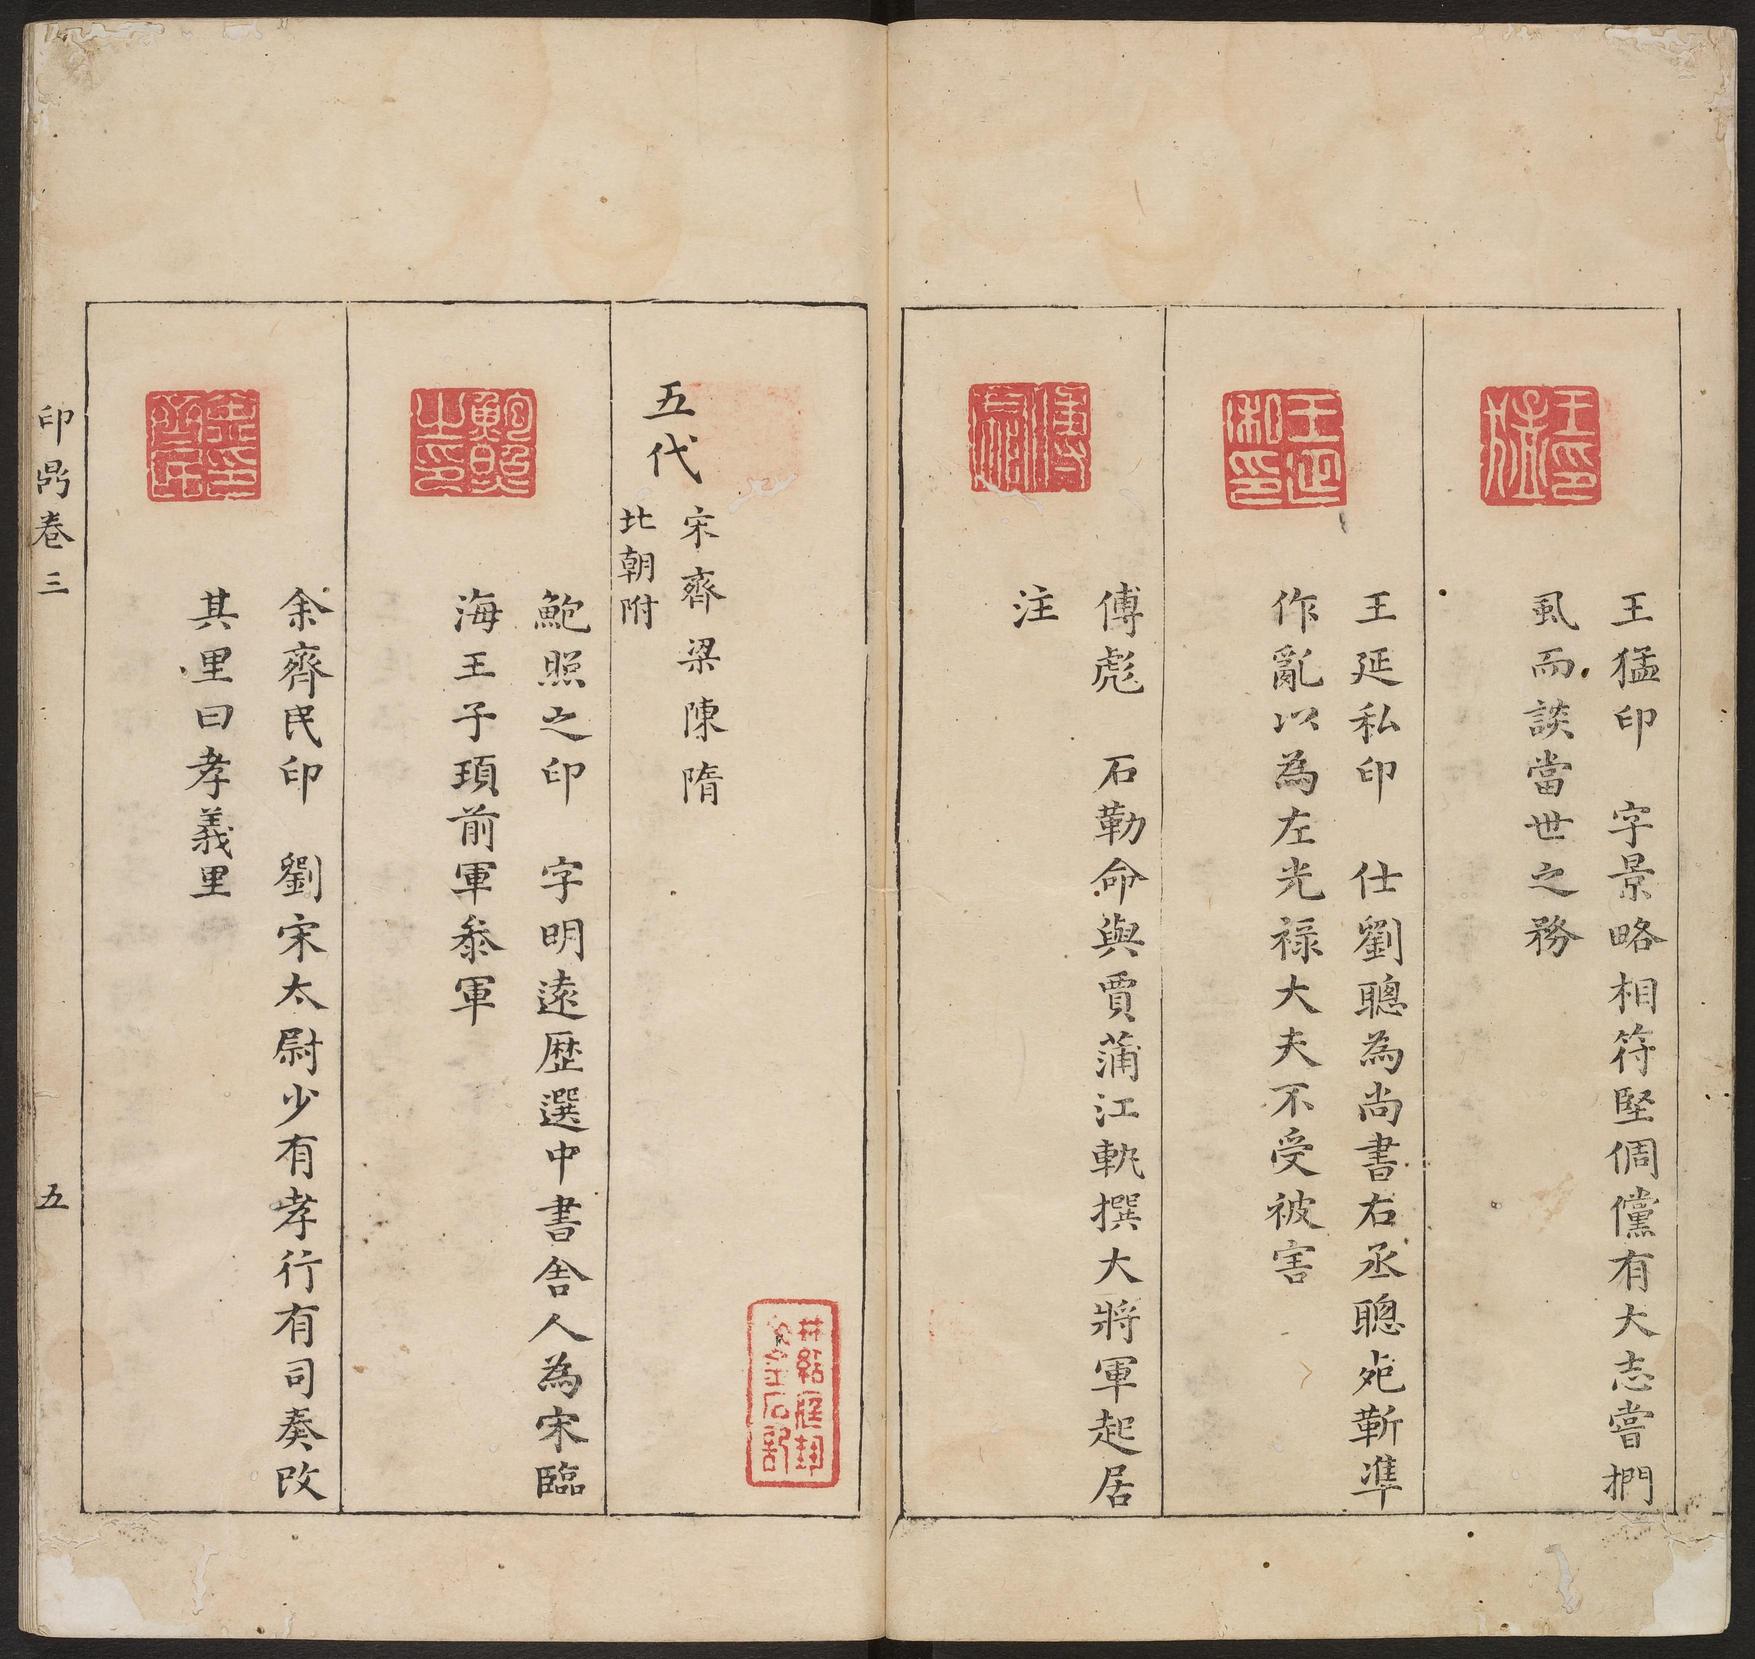 王猛印　字景略相符堅倜儻有大志嘗捫
虱而談當世之務
王延私印　仕劉聰為尚書右丞聰死靳準
作亂以為左光禄大夫不受被害
傅彪　石勒命與賈蒲江軌撰大將軍起居
注
五代
宋齊梁陳隋
北朝附
鮑照之印　字明遠歷選中書舍人為宋臨
海王子頊前軍叅軍
余齊民印　劉宋太尉少有孝行有司奏改
其里曰孝義里
印鼎卷三
五
王猛印
王延私印
傅彪
鮑照之印